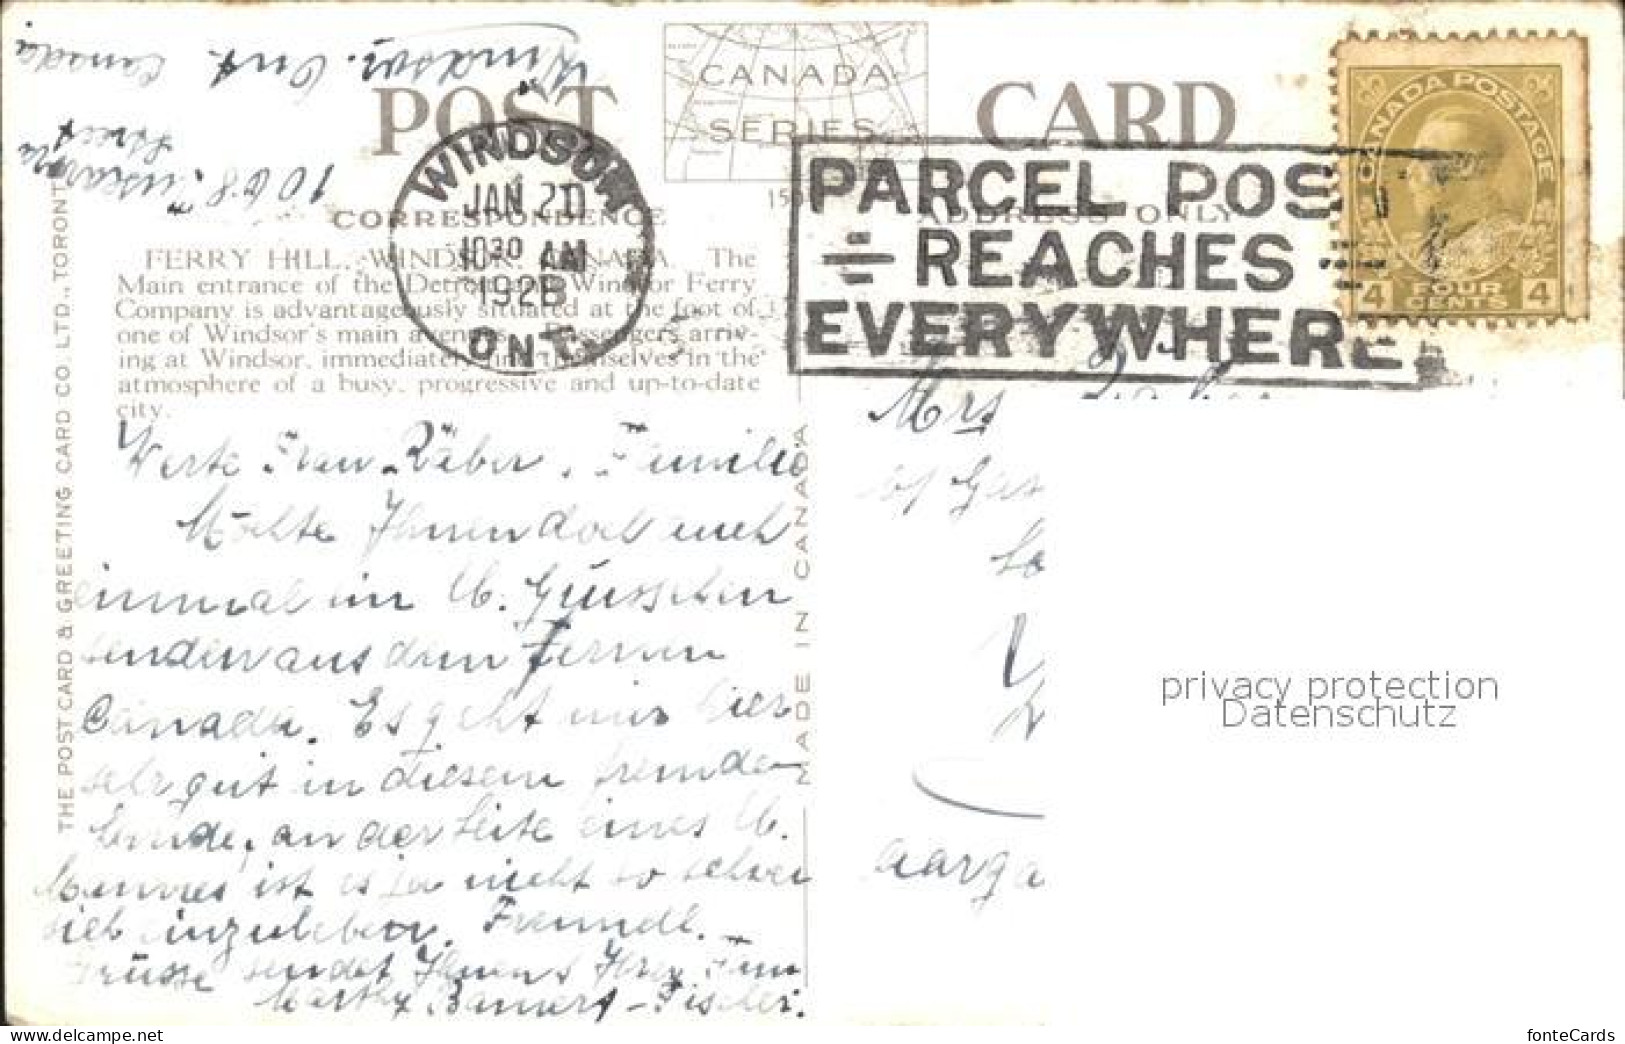 Windsor, Ont. Canada
1068 Tuscarora
Street
POST CARD
CANADA
SERIES
WINDSOR
JAN 20
10 30 AM
1926
ONT
PARCEL POST
REACHES
EVERYWHERE
CANADA POSTAGE
4 FOUR CENTS 4
CORRESPONDENCE
ADDRESS ONLY
FERRY HILL, WINDSOR, CANADA. The
Main entrance of the Detroit and Windsor Ferry
Company is advantageously situated at the foot of
one of Windsor's main avenues. Passengers arriv-
ing at Windsor, immediately find themselves in the
atmosphere of a busy, progressive and up-to-date
city.
THE POST CARD & GREETING CARD CO. LTD., TORONTO
MADE IN CANADA
Werte Frau Räber, Familie
Möchte Ihnen doch auch
einmal ein lb. Grüsschen
senden aus dem fernen
Canada. Es geht mir hier
sehr gut in diesem fremden
Lande, an der Seite eines lb.
Mannes ist es ja nicht so schwer
sich einzuleben. Freundl.
Grüsse sendet Ihnen & Ihrer Fam
Martha Bannert-Fischer.
Mrs
Aarga
privacy protection
Datenschutz
fonteCards